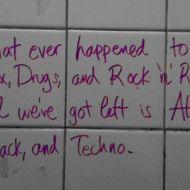 at ever happened to
x, Drugs, and Rock 'n' R
we've got left is A
ack, and Techno.